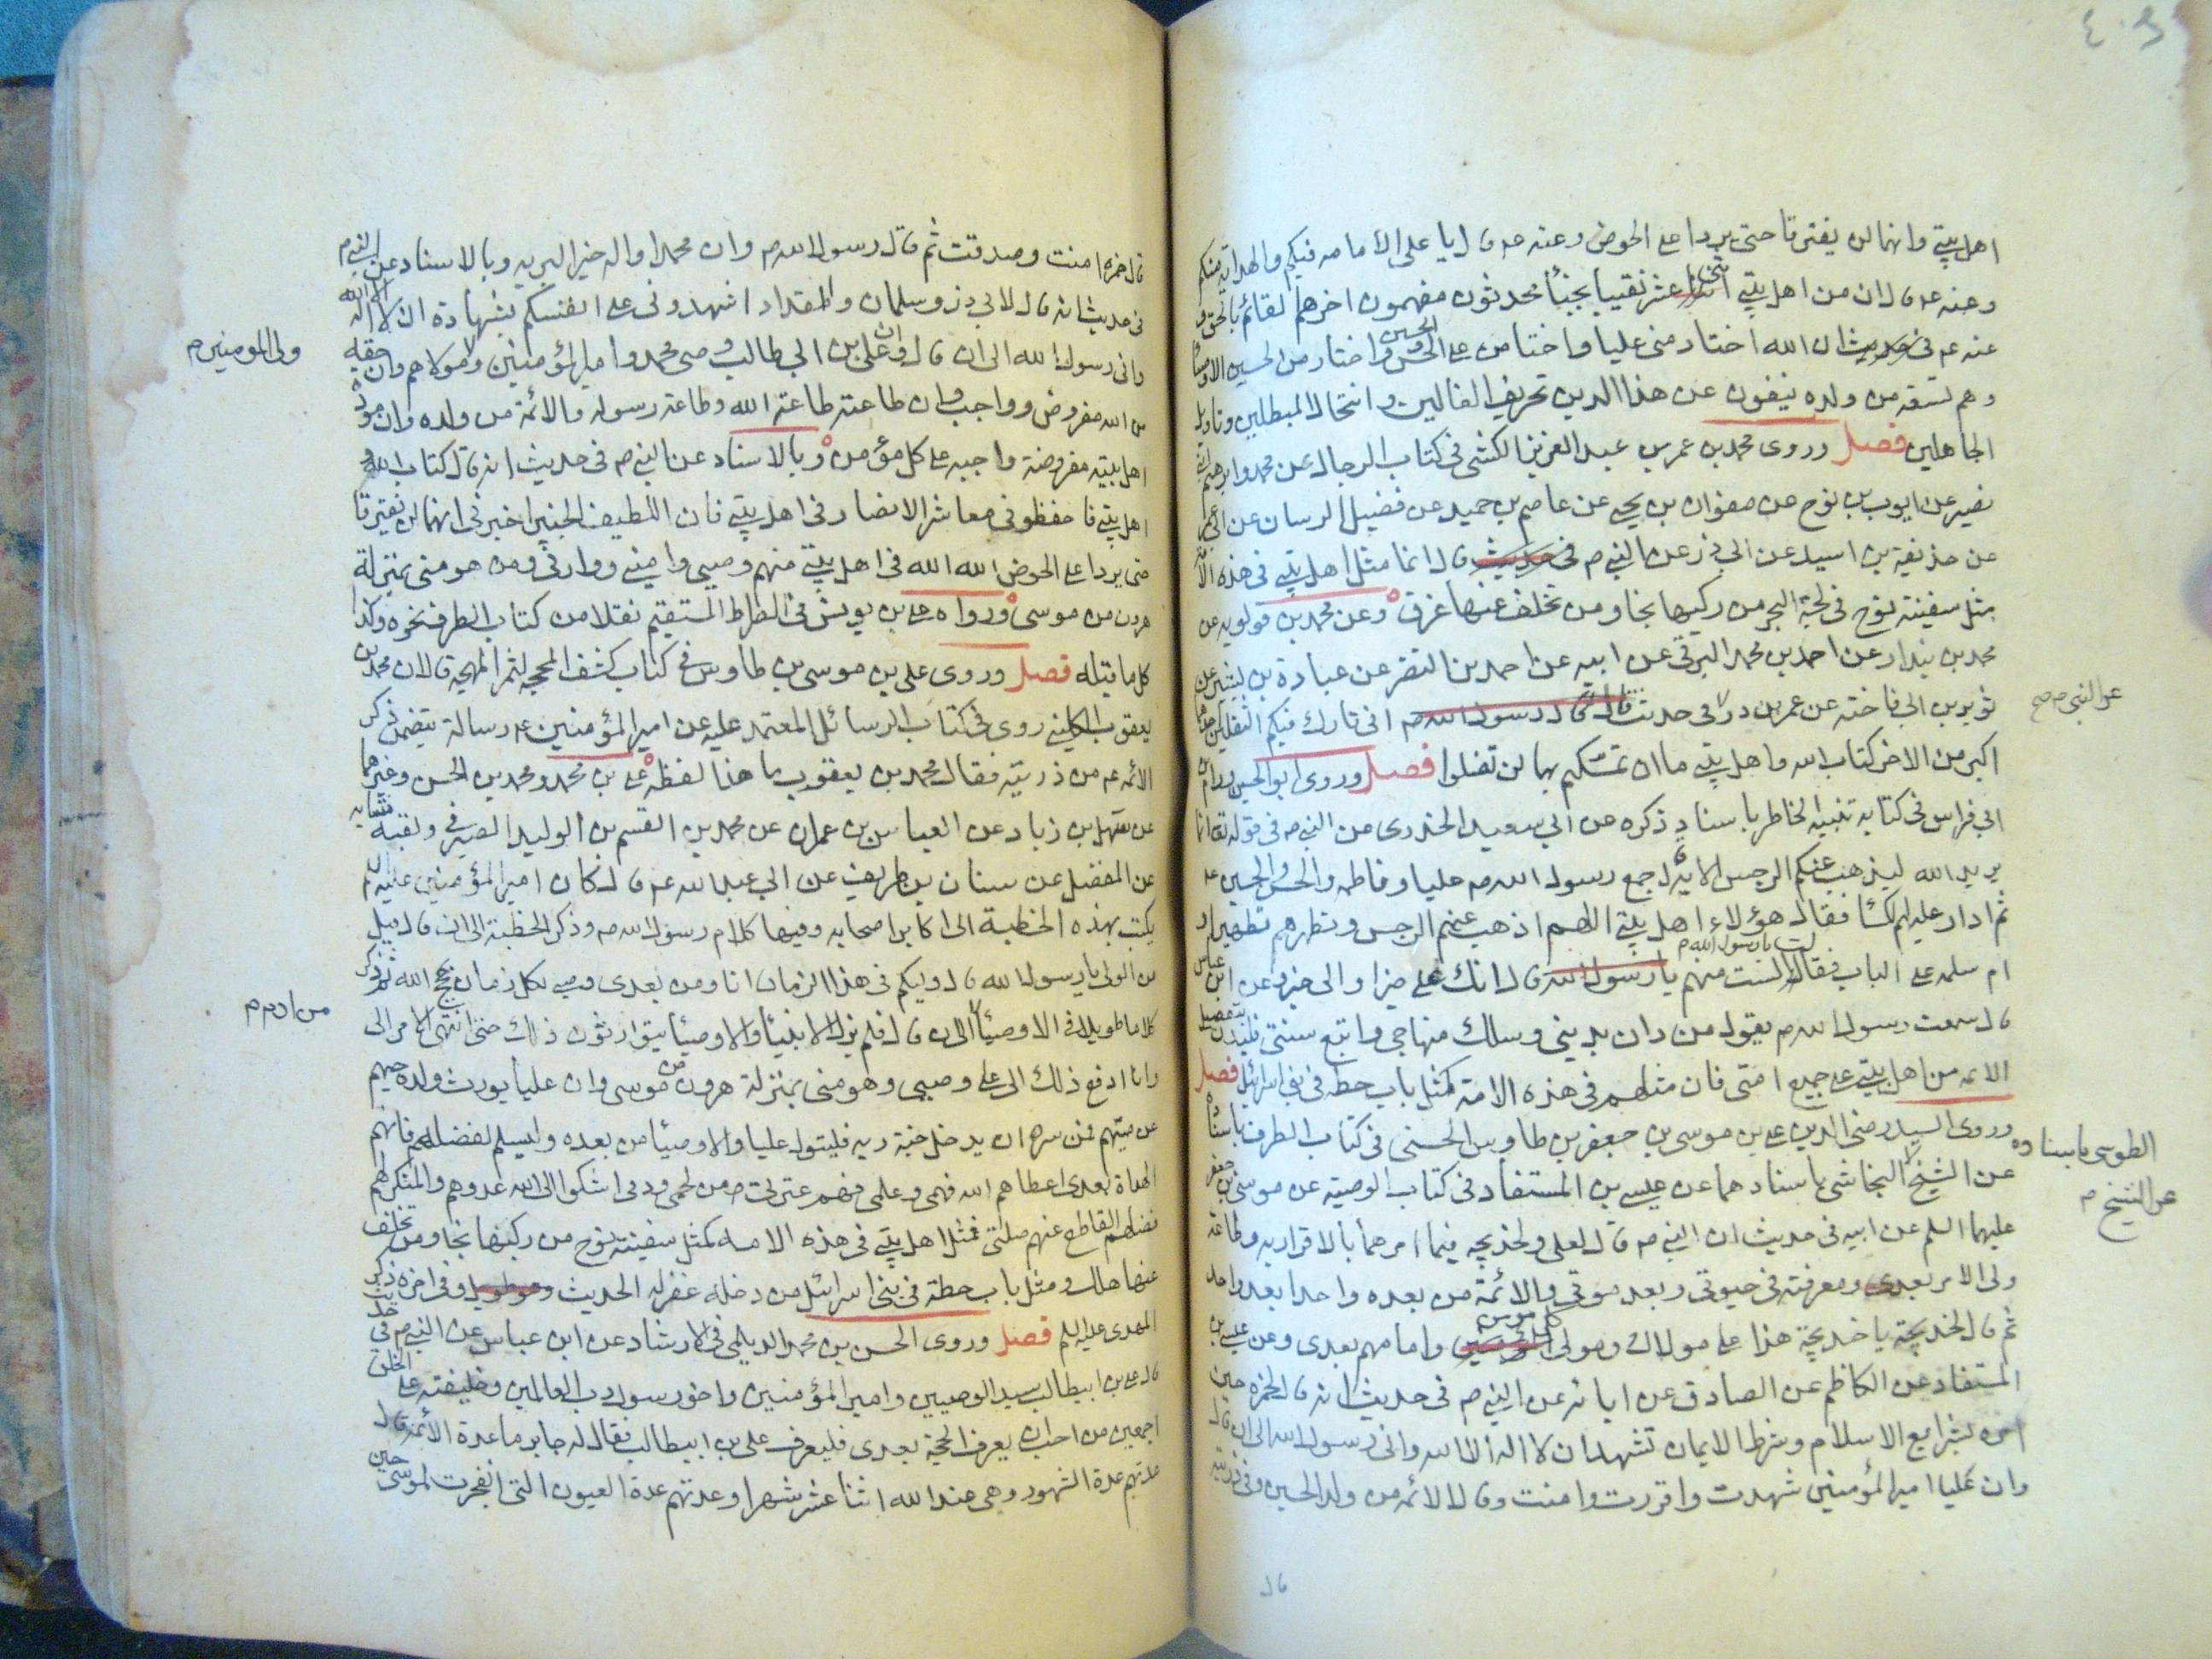 اهل بيتي وانهما لن يفترقا حتى يردا على الحوض وعنه ع قال يا على الأمامه فيكم والهداية منكم
وعنه ع قال ان من اهل بيتي اثنا عشر نقيبا نجبأ محدثون مفهمون اخرهم القائم بالحق و
عنه ع فى حديث ان الله اختار منى عليا واختار من على الحسن والحسين واختار من الحسين الاوصيأ
وهم تسعه من ولده ينفون عن هذا الدين تحريف الغالين وانتحال المبطلين وتاويل
الجاهلين فصل وروى محمد بن عمر بن عبد العزيز الكشى فى كتاب الرجال عن محمد وابرهيم ابنى
نصير عن ايوب بن نوح عن صفوان بن يحيى عن عاصم بن حميد عن فضيل الرسان عن ابى عمر
عن حذيفة بن اسيد عن ابى ذر عن النبى م فى حديث قال انما مثل اهل بيتي فى هذه الامة
مثل سفينة نوح فى لجة البحر من ركبها نجا ومن تخلف عنها غرق وعن محمد بن قولويه عن
محمد بن بندار عن احمد بن محمد البرقى عن ابيه عن احمد بن النضر عن عبادة بن بشير عن
ثوير بن ابى فاختة عن عمر بن ذر فى حديث قال قال رسول الله م انى تارك فيكم الثقلين احدهما
عن النبى م صح
اكبر من الاخر كتاب الله واهل بيتي ما ان تمسكتم بهما لن تضلوا فصل وروى ابو الحسين ورام بن
ابى فراس فى كتابه تنبيه الخاطر باسناد ذكره عن ابي سعيد الخدرى عن النبى م فى قوله تعا انما
يريد الله ليذهب عنكم الرجس الاية قال جمع رسول الله م عليا وفاطمه والحسن والحسين ع
ثم ادار عليهم الكسأ فقال هؤلاء اهل بيتي اللهم اذهب عنهم الرجس وتطهرهم تطهيرا و
ام سلمه على الباب فقالت يا رسول الله م الست منهم يا رسول الله قال انك على خير او الى خير وعن ابن عباس
قال سمعت رسول الله م يقول من دان بديني وسلك منهاجي واتبع سنتى فليدن بتفضيل
الائمه من اهل بيتي على جميع امتى فان مثلهم فى هذه الامة كمثل باب حطه فى بنى اسرائيل فصل
وروى السيد رضى الدين على بن موسى بن جعفر بن طاوس الحسنى فى كتاب الطرف باسناده
الطوسى باسناده
عن الشيخ النجاشى باسنادهما عن عيسى بن المستفاد فى كتاب الوصية عن موسى بن جعفر
عن الشيخ م
عليهما السلم عن ابيه فى حديث ان النبى م قال لعلى ولخديجه فيما امرهما بالاقرار به وطاعة
ولى الامر بعدى ومعرفته فى حيوتى وبعد موتى والائمة من بعده واحدا بعد واحد
ثم قال لخديجة يا خديجة هذا على مولاك ومولى المؤمنين وامامهم بعدى وعن عيسى بن
المستفاد عن الكاظم عن الصادق عن ابائه عن النبى م فى حديث انه قال لحمزه حين
اخره بشرايع الاسلام وشرط الايمان تشهد ان لا اله الا الله وانى رسول الله الى ان قال
وان عليا امير المؤمنين شهدت واقررت وامنت وقال الائمه من ولد الحسين وفى ذريته
قال
قال حمزه امنت وصدقت ثم قال رسول الله م وان محمدا واله خير البريه وبالاسناد عن النبى م
فى حديث انه قال لابى ذر وسلمان والمقداد اشهدونى على انفسكم بشهادة ان لا اله الا الله
وانى رسول الله الى ان قال وان على بن ابى طالب وصى محمد وامير المؤمنين ومولاهم وان حقه
ولى المومنين م
من الله مفروض وواجب وان طاعته طاعة الله وطاعة رسوله والائمة من ولده وان مودة
اهل بيته مفروضة واجبه على كل مؤمن وبالاسناد عن النبى م فى حديث انه قال كتاب الله و
اهل بيتي فاحفظونى معاشر الانصار فى اهل بيتي فان اللطيف الخبير اخبرنى انهما لن يفترقا
حتى يردا على الحوض الله الله فى اهل بيتي منهم وصيى وامينى ووارثى ومن هو منى بمنزلة
هرون من موسى ورواه على بن يونس فى الصراط المستقيم نقلا من كتاب الطرف نحوه وكذا
كل ما قبله فصل وروى على بن موسى بن طاوس فى كتاب كشف المحجه لثمر المهجه قال ان محمد بن
يعقوب الكليني روى فى كتاب الرسائل المعتمد عليه عن امير المؤمنين ع رسالة يتضمن ذكر
الائمه ع من ذريته فقال محمد بن يعقوب ما هذا لفظه على بن محمد ومحمد بن الحسن وغيرهما
عن سهل بن زياد عن العباس بن عمران عن محمد بن القسم بن الوليد الصيرفى
عن المفضل عن سنان بن طريف عن ابى عبد الله ع قال كان امير المؤمنين عليه السلم
يكتب بهذه الخطبة الى اكابر اصحابه وفيها كلام رسول الله م وذكر الخطبة الى ان قال قيل
من الولى يا رسول الله قال وليكم فى هذا الزمان انا ومن بعدى وصيى لكل زمان حجج الله ثم ذكر
كلاما طويلا فى الاوصيأ الى ان قال فلم يزل الانبيأ والاوصيأ يتوارثون ذلك حتى انتهى الامر الى
من ادم م
وانا ادفع ذلك الى على وصيى وهو منى بمنزلة هرون من موسى وان عليا يورث ولده حيهم
عن ميتهم فمن سره ان يدخل جنة ربه فليتول عليا والاوصيأ من بعده وليسلم لفضلهم فانهم
الهداة بعدى اعطاهم الله فهمى وعلمى فهم عترتى من لحمى ودمى اشكوا الى الله عدوهم والمنكر لهم
فضلهم القاطع عنهم صلتى فمثل اهل بيتي فى هذه الامه كمثل سفينة نوح من ركبها نجا ومن تخلف
عنها هلك ومثل باب حطة فى بنى اسرائيل من دخله غفر له الحديث وهو طويل وفى اخره ذكر
المهدى عليه السلم فصل وروى الحسن بن محمد الديلمى فى الارشاد عن ابن عباس عن النبى م فى حديث
قال على بن ابيطالب سيد الوصيين وامير المؤمنين واخو رسول رب العالمين وخليفته على الخلق
اجمعين من احب ان يعرف الحجة بعدى فليعرف على بن ابيطالب فقال له جابر ما عدة الأئمة قال
عدتهم عدة الشهور وهى عند الله اثنا عشر شهرا وعدتهم عدة العيون التى انفجرت لموسى حين